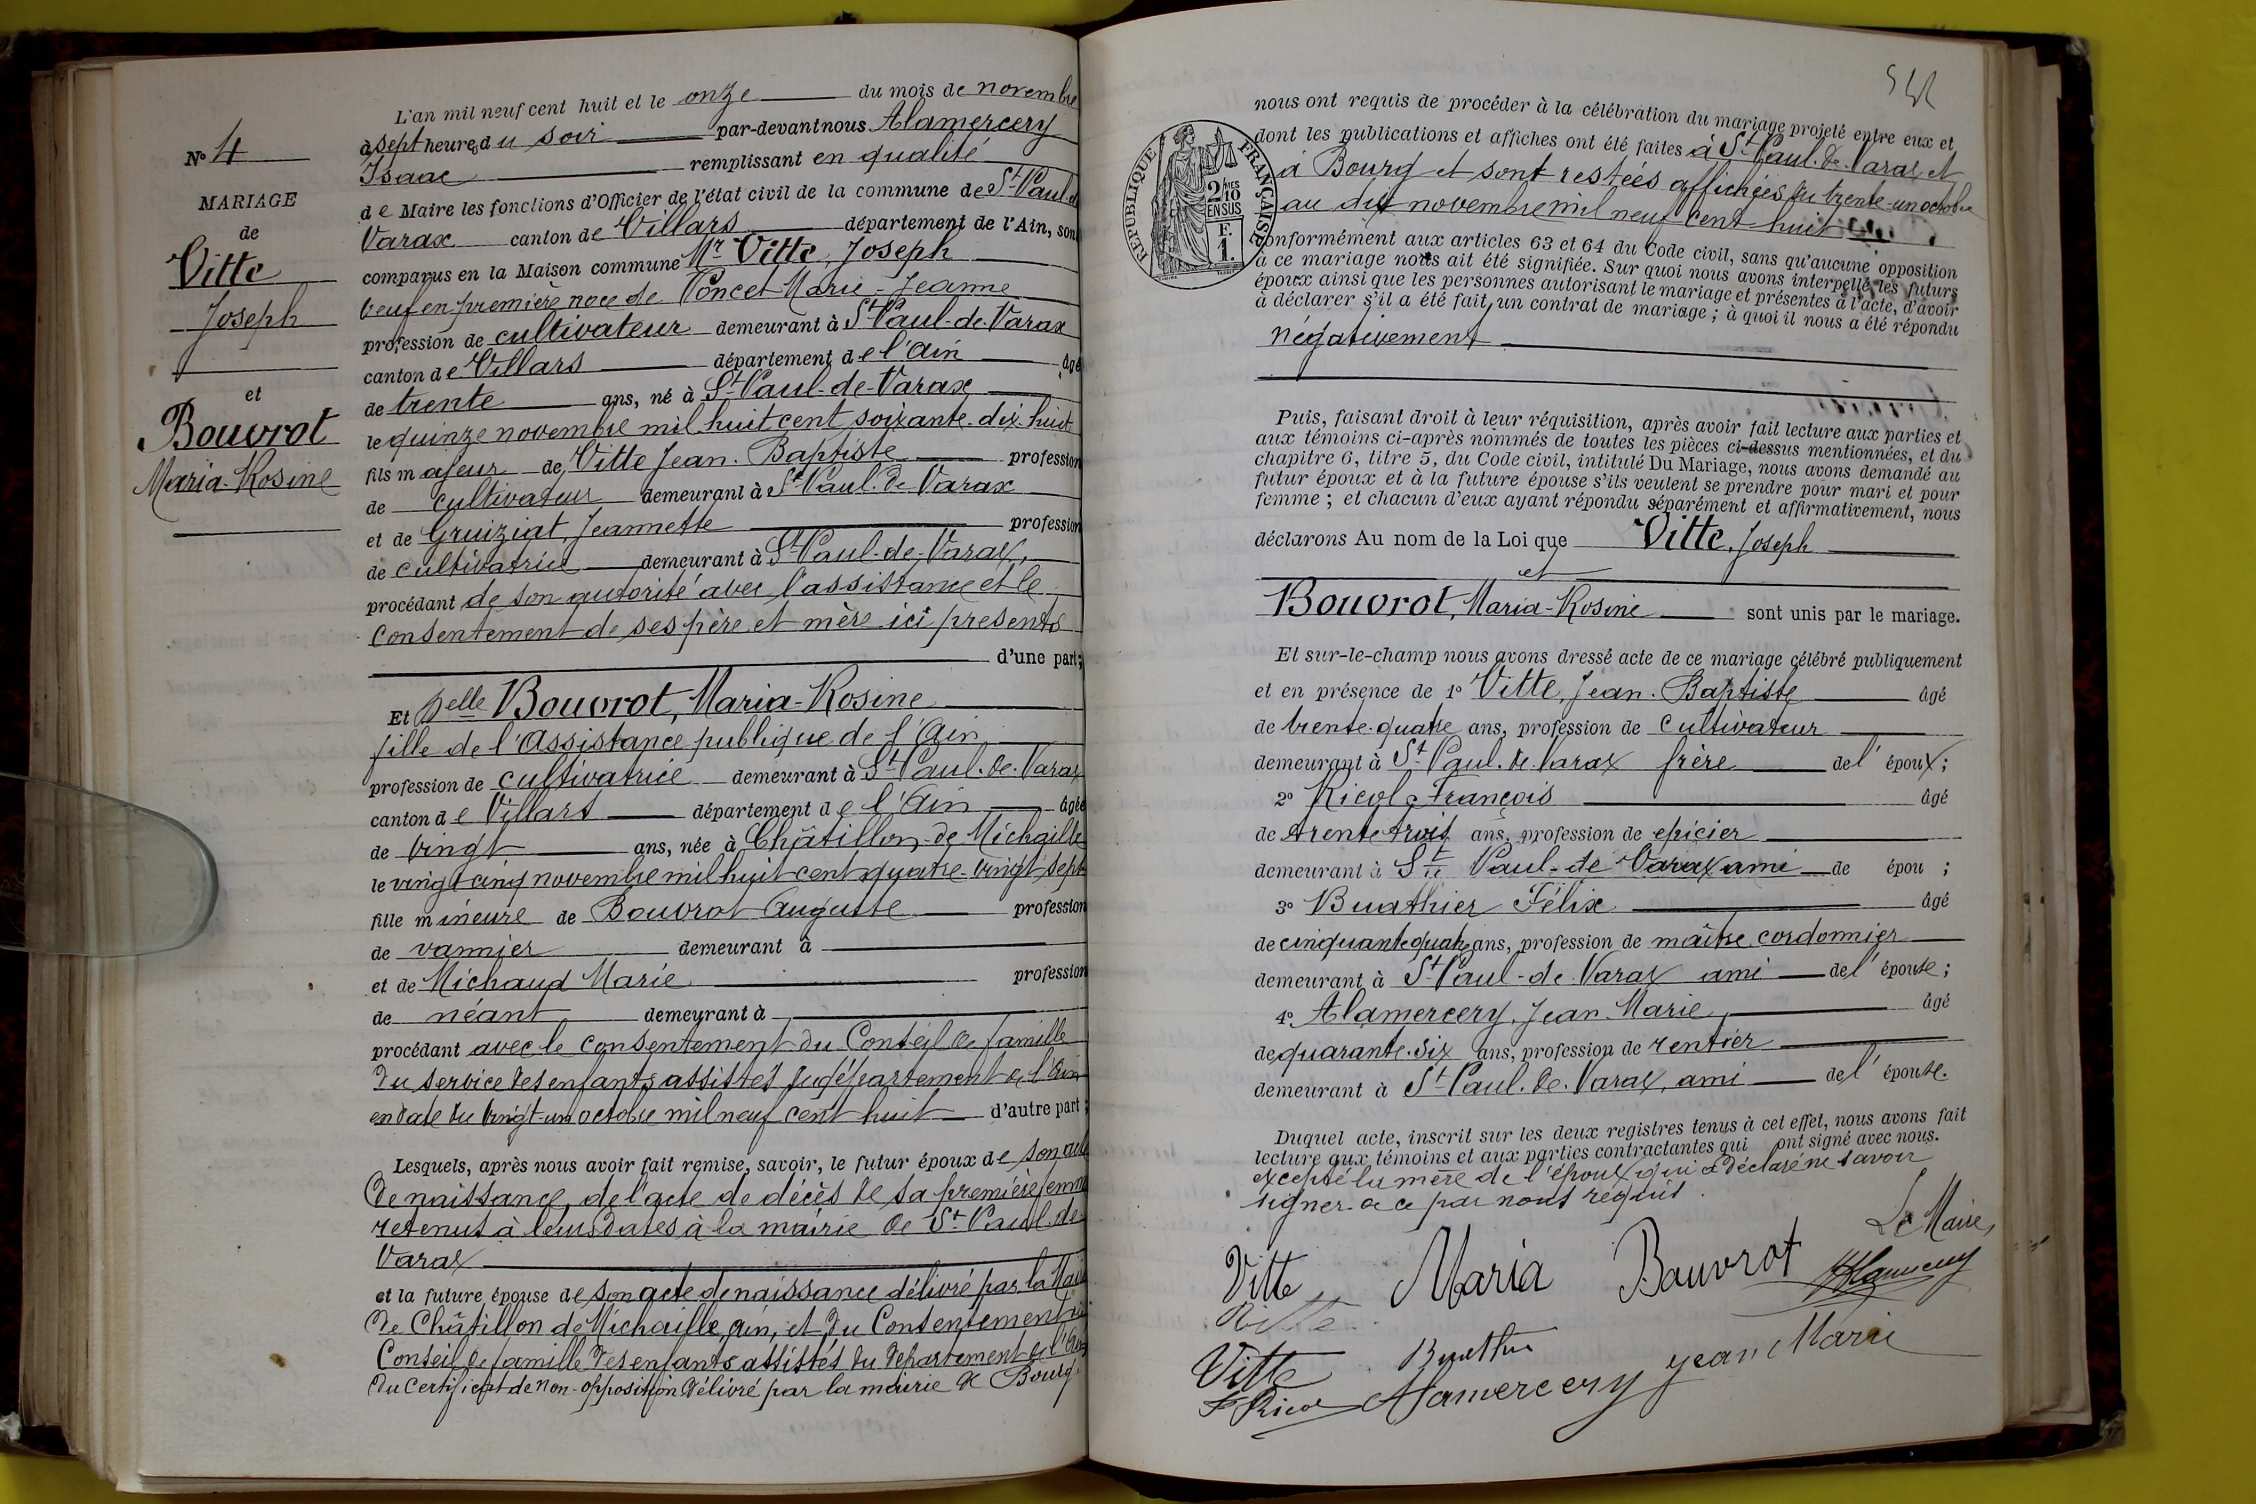 N° 4
MARIAGE
de
Vitte
Joseph
et
Bouvrot
Maria-Rosine
L'an mil neuf cent huit et le onze du mois de novembre
à sept heures du soir par-devant nous Alamercery
Isaac remplissant en qualité
de Maire les fonctions d'Officier de l'état civil de la commune de St-Paul-de
Varax canton de Villars département de l'Ain, sont
comparus en la Maison commune Mr Vitte, Joseph
veuf en première noce de Poncet Marie-Jeanne
profession de cultivateur demeurant à St-Paul-de-Varax
canton de Villars département de l'Ain âgé
de trente ans, né à St-Paul-de-Varax
le quinze novembre mil huit cent soixante-dix-huit
fils majeur de Vitte Jean-Baptiste profession
de cultivateur demeurant à St-Paul-de Varax
et de Gruiziat, Jeannette profession
de cultivatrice demeurant à St-Paul-de-Varax,
procédant de son autorité avec l'assistance et le
consentement de ses père et mère ici présents
d'une part;
Et Delle Bouvrot, Maria-Rosine
fille de l'Assistance publique de l'Ain
profession de cultivatrice demeurant à St-Paul-de-Varax
canton de Villars département de l'Ain âgée
de vingt ans, née à Châtillon-de-Michaille
le vingt cinq novembre mil huit cent quatre-vingt-sept
fille mineure de Bouvrot Auguste profession
de vannier demeurant à
et de Michaud Marie profession
de néant demeurant à
procédant avec le consentement du Conseil de famille
du service des enfants assistés du département de l'Ain
en date du vingt-un octobre mil neuf cent huit d'autre part;
Lesquels, après nous avoir fait remise, savoir, le futur époux de son acte
de naissance, de l'acte de décès de sa première femme
retenus à leurs dates à la mairie de St-Paul-de-
Varax
et la future épouse de son acte de naissance délivré par la Mairie
de Châtillon de Michaille, ain, et du Consentement du
Conseil de famille des enfants assistés du département de l'Ain
du certificat de non-opposition délivré par la mairie de Bourg.
RÉPUBLIQUE FRANÇAISE
2/10 MES
EN SUS
F.
1.
nous ont requis de procéder à la célébration du mariage projeté entre eux et
dont les publications et affiches ont été faites à St-Paul-de-Varax et
à Bourg et sont restées affichées du trente-un octobre
au dix novembre mil neuf cent huit
conformément aux articles 63 et 64 du Code civil, sans qu'aucune opposition
à ce mariage nous ait été signifiée. Sur quoi nous avons interpellé les futurs
époux ainsi que les personnes autorisant le mariage et présentes à l'acte, d'avoir
à déclarer s'il a été fait un contrat de mariage; à quoi il nous a été répondu
négativement
Puis, faisant droit à leur réquisition, après avoir fait lecture aux parties et
aux témoins ci-après nommés de toutes les pièces ci-dessus mentionnées, et du
chapitre 6, titre 5, du Code civil, intitulé Du Mariage, nous avons demandé au
futur époux et à la future épouse s'ils veulent se prendre pour mari et pour
femme; et chacun d'eux ayant répondu séparément et affirmativement, nous
déclarons Au nom de la Loi que Vitte, Joseph
et
Bouvrot, Maria-Rosine sont unis par le mariage.
Et sur-le-champ nous avons dressé acte de ce mariage célébré publiquement
et en présence de 1° Vitte, Jean-Baptiste âgé
de trente-quatre ans, profession de cultivateur
demeurant à St-Paul-de-Varax frère de l'époux;
2° Ricol François âgé
de trente trois ans, profession de épicier
demeurant à St Paul-de Varax ami de épou ;
3° Buathier Félix âgé
de cinquante quatre ans, profession de maître cordonnier
demeurant à St-Paul-de Varax ami de l'épouse;
4° Alamercery, Jean-Marie, âgé
de quarante-six ans, profession de rentier
demeurant à St-Paul-de-Varax, ami de l'épouse.
Duquel acte, inscrit sur les deux registres tenus à cet effet, nous avons fait
lecture aux témoins et aux parties contractantes qui ont signé avec nous.
excepté la mère de l'époux qui a déclaré ne savoir
signer de ce par nous requis.
Le Maire,
Vitte Maria Bouvrot Alamercery
Vitte
Vitte Buathier
F Ricol Alamercery Jean Marie